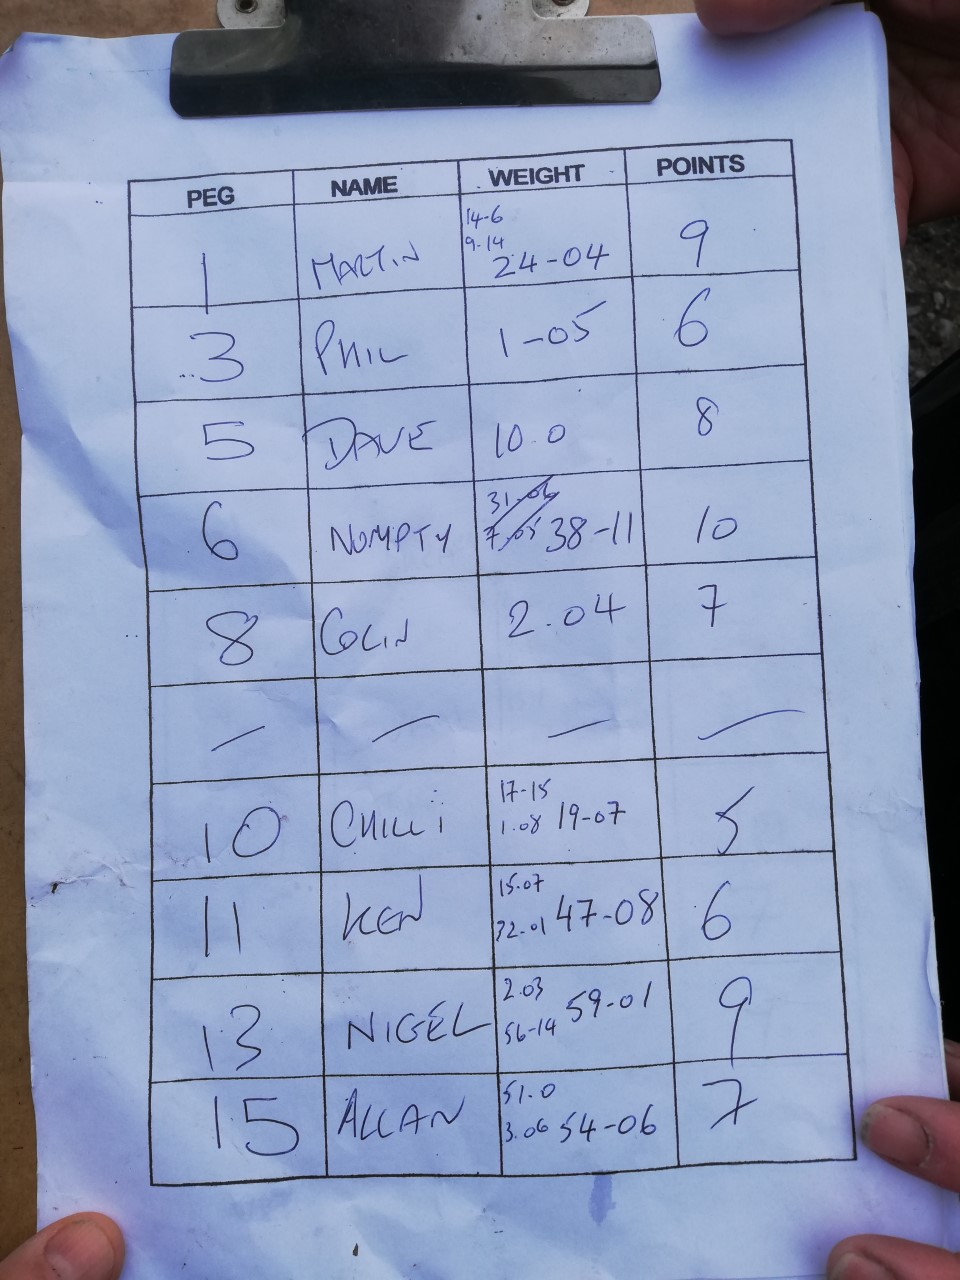 PEG NAME WEIGHT POINTS
14-6
9-14
1 MARTIN 24-04 9
3 PHIL 1-05 6
5 DAVE 10.0 8
31-06
7.05
6 NUMPTY 38-11 10
8 COLIN 2.04 7
— — — —
17-15
1.08
10 CHILLi 19-07 5
15.07
32-01
11 KEN 47-08 6
2.03
56-14
13 NIGEL 59-01 9
51.0
3.06
15 ALLAN 54-06 7